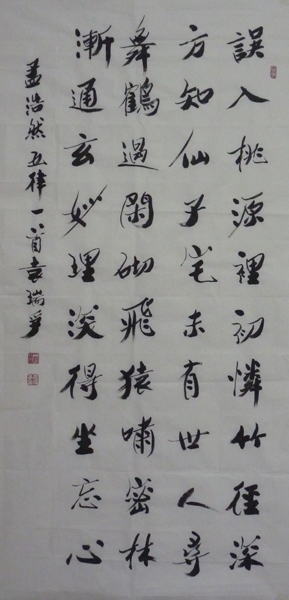 誤入桃源裡初憐竹徑深
方知仙子宅未有世人尋
舞鶴過閑砌飛猿嘯密林
漸通玄妙理深得坐忘心
孟浩然五律一首袁瑞